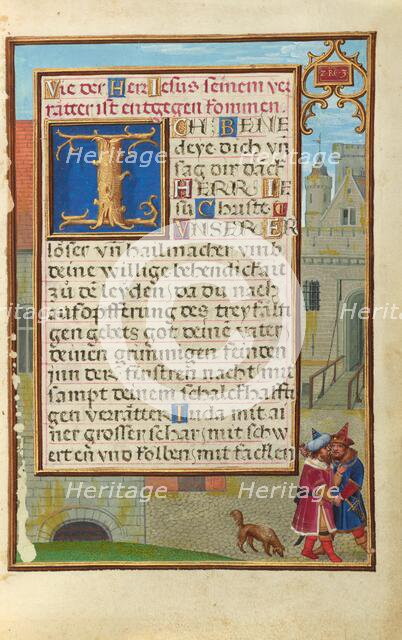 2·RG·3
Vie der Herr Iesus seinem ver
rätter ist entgegen kommen.
ICH BENE
deye dich vn
sag dir dack
HERR IE
su Christe
VNSER ER
löser vn hailmacher vmb
deine willige behendickait
zu dē leyden, da du nach
aufopfferung des treyfalti
gen gebets got deinē vater
deinen grimmigen feinden
inn der finstren nacht mit
sampt deinem schalckhaffti
gen verrätter Iuda mit ai
ner grosser schar, mit schw
erten vnd kolben, mit facklen
Heritage
Heritage
Heritage
Heritage
Heritage
Heritage
Heritage
Heritage
Heritage
Heritage
Heritage
Heritage